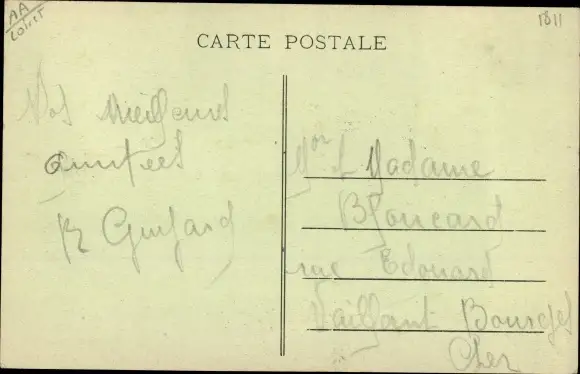 AA
Loiret
1811
CARTE POSTALE
Nos Meilleures
Amitiés
R Guifard
Mor & Madame
Bfoucard
rue Edouard
Vaillant Bourges
Cher